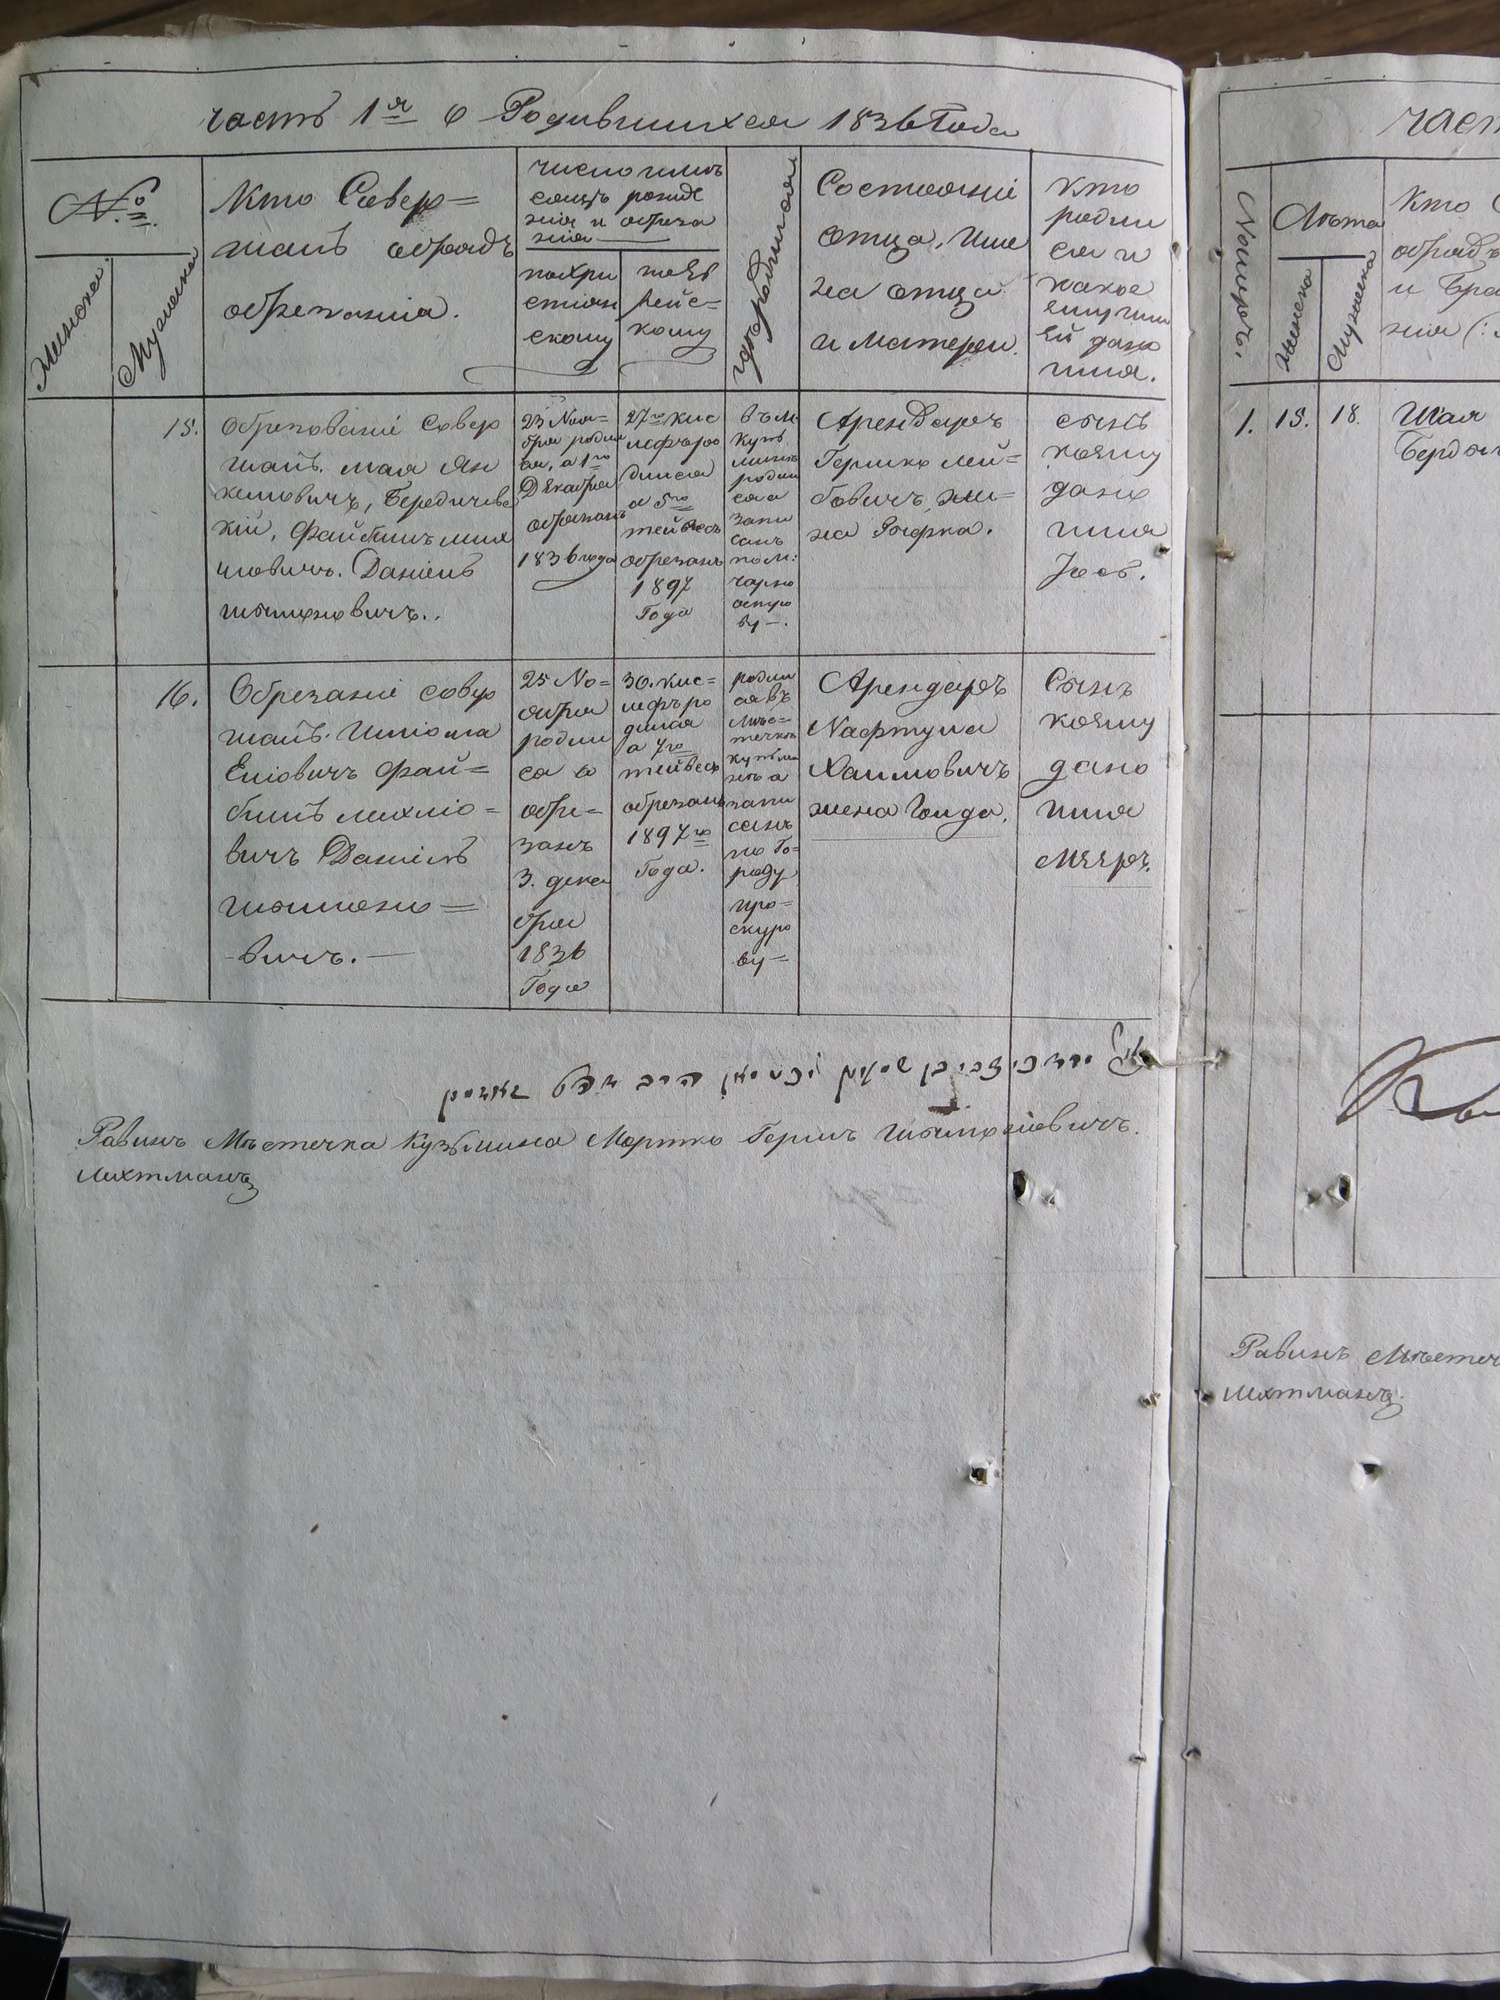 часть 1я о Родившихся 1836 Года
№
Женска
Мужеска
Кто Совер=
шалъ обрядъ
обрезанія.
число и мѣ
сяцъ рожде
нія и обреза
нія
похри
стіян
скому
поев
рейс=
кому
где родился
Состояніе
отца, Име
на отца
и матери.
кто
родил
ся и
какое
ему или
ей дано
имя.
15.
Обрезованіе совер
шалъ. мая Ян
келовичъ, Бередичевс
кій, Файбишъ мих
иловичъ. Даніель
шылоновичъ..
23 Ноя=
бря родил
ся, а 1го
Декабря
обрезанъ
1836 года
27го кис
лефъ ро
дился
а 5го
тейвесъ
обрезанъ
1897
Года
въ м.
кузь
минѣ
родил
ся а
запи
санъ
по м:
чорно
острю
ву=.
Арендаръ
Гершко Лей=
бовичъ, же=
на Рыфка.
сынъ
коему
дано
имя
Іось.
16.
Обрезаніе совер
шалъ. Шліома
Еліовичъ Фай=
бишъ михліо=
вичъ Даніель
шылионо=
-вичъ.
25 Но=
оября
родил
ся а
обре=
занъ
3. дека
бря
1836
Года
30. кис=
лефъ ро
дился
а 7го
тейвесъ
обрезанъ
1897го
Года.
родил
ся въ
мѣс=
течкѣ
кузьми
нѣ а
запи
санъ
по Го=
роду
про=
скуро
ву=
Арендаръ
Нафтула
Хаимовичъ
жена Гоида.
Сынъ
коему
дано
имя
Мееръ.
Равинъ Мѣстечка Кузьмина Мортко Гершъ Шылионовичъ.
Лихтманъ
част
Номеръ.
Лѣта
Женска
Мужеска
Кто
обрядъ
и Бра
нія (:
1.
15.
18.
Шая
Бердич
Равинъ Мѣстеч
Лихтманъ.